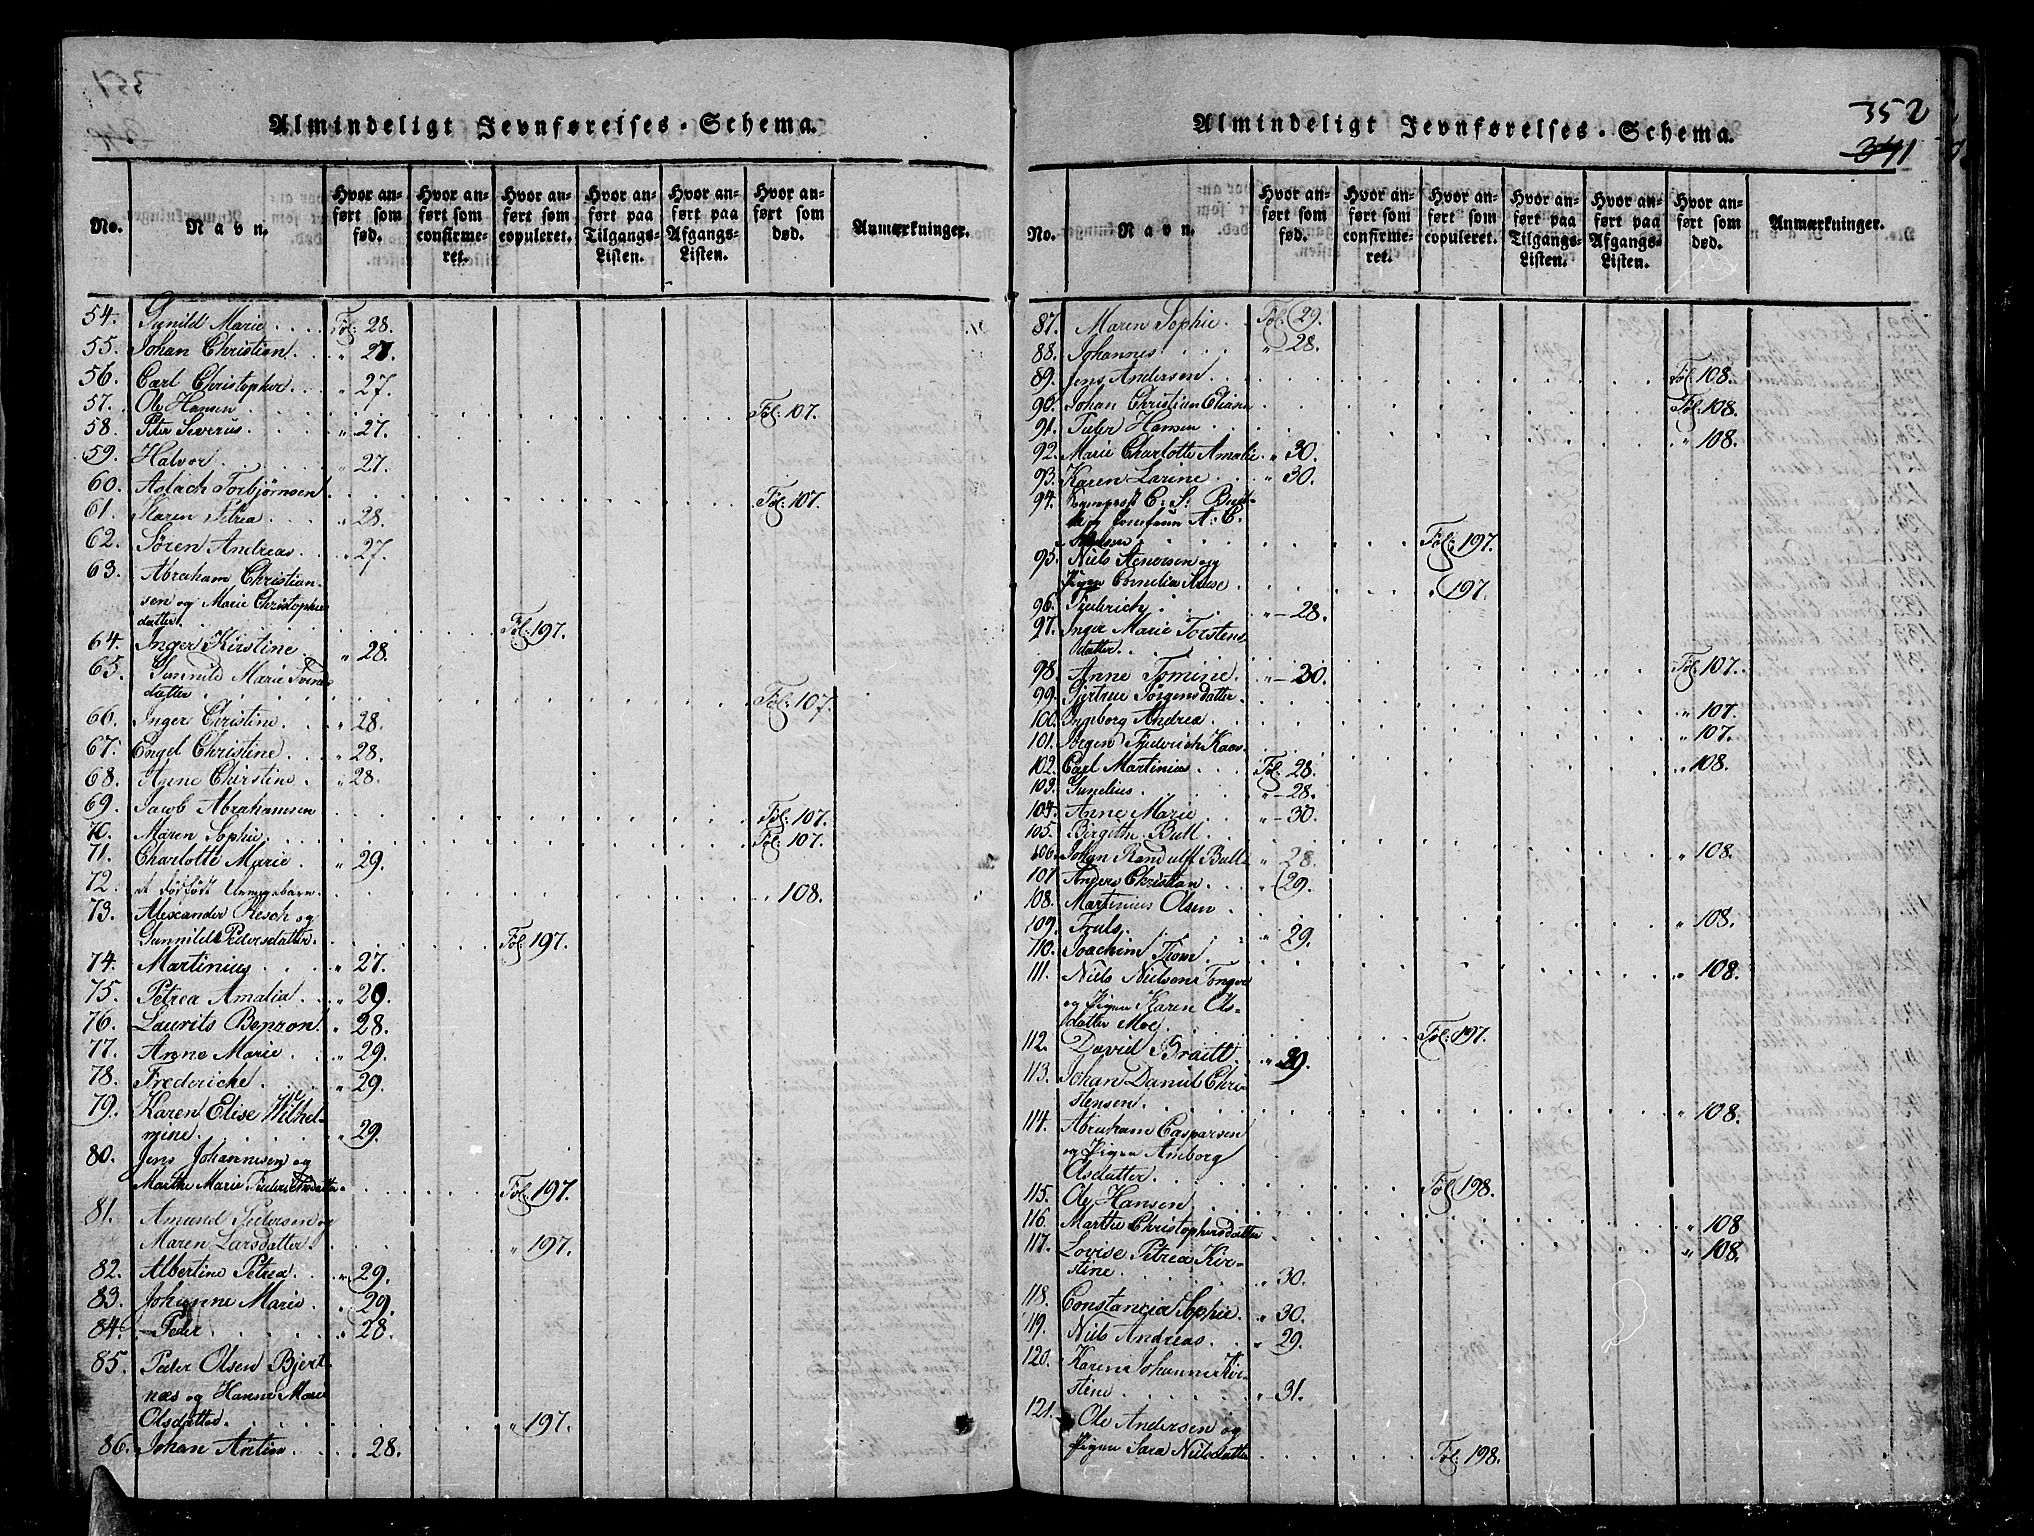 Almindeligt Jevnførelses-Schema.
No.
Navn.
Hvor anført som fød.
Hvor anført som confirmeret.
Hvor anført som copuleret.
Hvor anført paa Tilgangs-Listen.
Hvor anført paa Afgangs-Listen.
Hvor anført som død.
Anmærkninger.
54. Gunild Marie Fol: 28.
55. Johan Christian " 28.
56. Carl Christopher " 27.
57. Ole Hansen Fol: 107.
58. Peter Severus " 27.
59. Halvor " 27.
60. Aslach Torbjørnsen Fol: 107.
61. Karen Petrea " 28.
62. Søren Andreas " 27.
63. Abraham Christian-
sen og Marie Christophers
datter Fol: 197.
64. Inger Kirstine " 28.
65. Gunnild Marie
datter Fol: 107.
66. Inger Christine " 28.
67. Engel Christine " 28.
68. Anne Christine " 28.
69. Jacob Abrahamsen Fol: 107.
70. Maren Sophie Fol: 107.
71. Charlotte Marie " 29.
72. et dødfødt " 108.
73. Alexander Resch og
Gunnild Pedersdatter Fol: 197.
74. Martinius " 27.
75. Petrea Amalia
76. Laurits Benzon " 28.
77. Anne Marie " 29.
78. Frederiche " 29.
79. Karen Elise Wilhel-
mine " 29.
80. Jens Johannesen og
Marthe Marie Fol: 197.
81. Amund Pedersen og
Maren Larsdatter " 197.
82. Albertine Petrea " 29.
83. Johanne Marie " 29.
84. Peder " 28.
85. Peder Olsen Bjert-
næs og Hanne Marie
Olsdatter " 197.
86. Johan Anton " 28.
352
341
Almindeligt Jevnførelses-Schema.
No.
Navn.
Hvor anført som fød.
Hvor anført som confirmeret.
Hvor anført som copuleret.
Hvor anført paa Tilgangs-Listen.
Hvor anført paa Afgangs-Listen.
Hvor anført som død.
Anmærkninger.
87. Maren Sophie Fol: 29.
88. Johannes " 28.
89. Jens Andersen Fol: 108.
90. Johan Christian Fol: 108.
91. Peder Hansen " 108.
92. Marie Charlotte Amalie " 30.
93. Karen Larine " 30.
94. C: S: Bull
og Jomfrue A: C.
Fol: 197.
95. Niels Asmorsen og
Pigen Cornelia " 197.
96. Friderich " 28.
97. Inger Marie Torstens
datter Fol: 107.
98. Anne Tomine " 30.
99. Gjertrue Jørgensdatter " 107.
100. Ingeborg Andrea " 107.
101. Jørgen Friderich Kaas " 108.
102. Carl Martinius Fol: 28.
103. Gunelius " 28.
104. Anne Marie " 30.
105. Birgethe Bull " 108.
106. Johan Randulff Bull " 28.
107. Anders Christian " 29.
108. Martinius Olsen " 108.
109. Truls " 29.
110. Joachim Trom " 108.
111. Niels Nielsen
og Pigen Karen Ols-
datter Moe Fol: 197.
112. David " 29.
113. Johan Daniel Chri-
stensen " 108.
114. Abraham Caspersen
og Pigen Amborg
Olsdatter Fol: 198.
115. Ole Hansen " 108
116. Marthe Christophersdatter " 108
117. Lovise Petrea Kir-
stine " 30.
118. Constancia Sophie " 30.
119. Niels Andreas " 29.
120. Karen Johanne Kir-
stine " 31.
121. Ole Andersen og
Pigen Sara Nilsdatter Fol: 198.